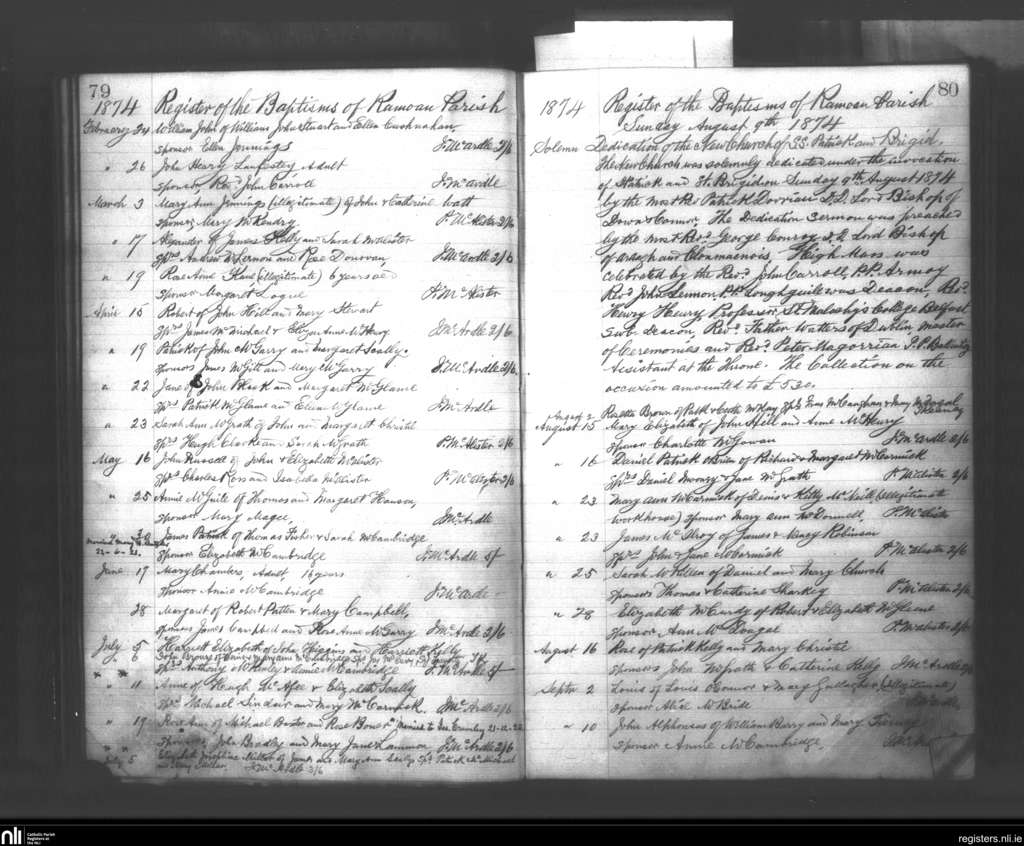 79
1874 Register of the Baptisms of Ramoan Parish
February 24 William John of William John Stuart and Ellen
Sponsor Ellen Jennings J. McArdle 2/6
" 26 John Henry Adult
Sponsor Revd. John Carroll J. McArdle
March 3 Mary Ann Jennings (illegitimate) of John & Catherine Watt
Sponsor Mary McKendry P. McAlister 2/6
" 17 Alexander of James Kelly and Sarah McAlister
Sprs Andrew McLernon and Rose Donovan J. McArdle 2/6
" 19 Rose Anne Kane (illegitimate) 6 years old
Sponsor Margaret Logue P. McAlister
April 15 Robert of John Hill and Mary Stewart
Sprs James McMichael & Eliza Anne McHenry J McArdle 2/6
" 19 Patrick of John McGarry and Margaret Scally.
Sponsors James McGill and Mary McGarry J. McArdle 2/6
" 22 Jane of John Black and Margaret McGlame
Sprs Patrick McGlame and Ellen McGlame J McArdle
" 23 Sarah Ann McGrath of John and Margaret Christie
Sprs Hugh and Sarah McGrath P. McAlister 2/6
May 16 John Russell of John & Elizabeth McAlister
Sprs Charles Ross and Isabella McAlister P. McAlister 2/6
" 25 Annie McGuile of Thomas and Margaret Hanson,
Sponsor Mary Magee, J McArdle
" 28 James Patrick of Thomas Fisher & Sarah McCambridge
22-6-21. Sponsor Elizabeth McCambridge J. McArdle 5/
June 17 Mary Chambers, Adult, 16 years
Sponsor Annie McCambridge J. McArdle
28 Margaret of Robert Patten & Mary Campbell,
Sponsors James Campbell and Rose Anne McGarry J McArdle 2/6
July 5 Harriett Elizabeth of John Higgins and Harriett Kelly
" 6 John
Sprs Anthony McKinley & Annie McCambridge J. McArdle
" 11 Anne of Hugh McAfee & Elizabeth Scally
Sprs Michael Sinclair and Mary McCormick. J McArdle 2/6
" 19 Rose Ann of Michael Baxter and Rose Bonar
Sponsors John Bradley and Mary Jane Lammon J. McArdle 2/6
July 5 Elizabeth Josephine Millar of James and Mary Ann Scally Sprs Patrick McMichael
and Mary Millar. J. McArdle 2/6
80
1874 Register of the Baptisms of Ramoan Parish
Sunday August 9th 1874
Solemn Dedication of the New Church of SS. Patrick and Brigid.
The New Church was solemnly dedicated under the invocation
of St Patrick and St. Brigid on Sunday 9th August 1874
by the most Rev Patrick Dorrian D.D. Lord Bishop of
Down & Connor. The Dedication Sermon was preached
by the most Revd. George Conroy D.D. Lord Bishop
of Ardagh and Clonmacnois. High Mass was
celebrated by the Revd. John Carroll, P.P. Armoy
Revd John Lennon P.P. Loughguile was Deacon Revd.
Henry Henry, Professor St Malachy's College Belfast
Sub. Deacon, Revd. Father Watters of Dublin master
of Ceremonies and Revd. Peter Magorrian P.P.
Assistant at the Throne. The Collection on the
occasion amounted to £530.
August 2 Rosetta Brown of Patk & Cath McKay Sprs
August 15 Mary Elizabeth of John Hill and Anne McHenry
Sponsor Charlotte McGowan J. McArdle 2/6
" 16 Daniel Patrick O'Brien of Richard & Margaret McCormick
Sprs Daniel Mooney & Jane McGrath P. McAlister 2/6
" 23 Mary Ann McCormick of Denis & Kitty McNeill (illegitimate
workhouse) Sponsor Mary Ann McDonnell, P. McAlister
" 23 James McIlroy of James & Nancy Robinson
Sprs John & Jane McCormick P. McAlister 2/6
" 25 Sarah McKillen of Daniel and Mary Church
Sponsors Thomas & Catherine Sharkey P. McAlister 2/6
" 28 Elizabeth McCurdy of Robert & Elizabeth McGleene
Sponsor, Ann McDougal P. McAlister 2/6
August 16 Rose of Patrick Kelly and Mary Christie
Sponsors John McGrath & Catherine Kelly J. McArdle 2/6
Septr 2 Louis of Louis O'Connor & Mary Gallagher (illegitimate)
Sponsor Alice McBride J. McArdle
" 10 John Alphonsus of William Barry and Mary Tierney
Sponsor Annie McCambridge,
nli
Catholic Parish
Registers at
the NLI
registers.nli.ie